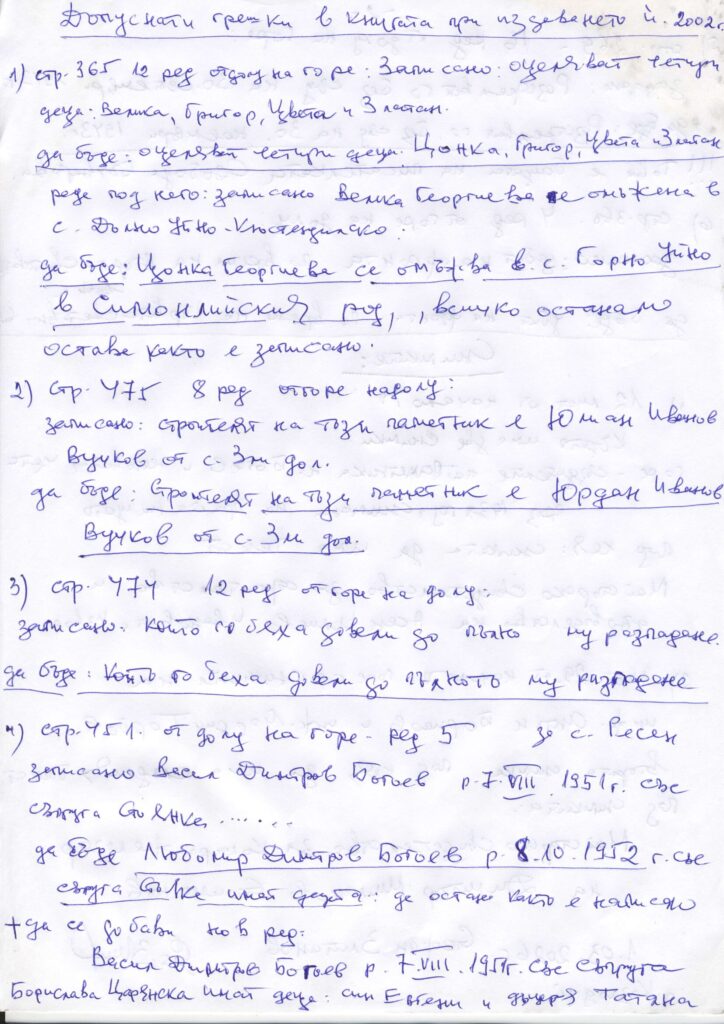 Допуснати грешки в книгата при издаването ѝ. 2002г.
1) стр. 365 12 ред отдолу на горе. Записано: оцеляват четири
деца. Велика, Григор, Цвета и Златан.
да бъде: оцеляват четири деца. Цонка, Григор, Цвета и Златан
реда под него: записано Велика Георгиева е омъжена в
с. Долно Уйно - Кюстендилско:
да бъде: Цонка Георгиева се омъжва в с. Горно Уйно
в Симонлийския род, всичко останало
остава както е записано.
2) стр. 475 8 ред отгоре надолу:
записано: строителят на този паметник е Юлиан Иванов
Вучков от с. Зли дол.
да бъде: Строителят на този паметник е Юрдан Иванов
Вучков от с. Зли дол.
3) стр. 474 12 ред отгоре на долу:
записано. Който го беха довели до пълно му разпадане.
да бъде: Които го беха довели до пълното му разпадане
4) стр. 451. от долу на горе - ред 5 за с. Ресен
записано Васил Димитров Богоев р. 7. VIII. 1951г. със
съпруга Стоянка.......
да бъде Любомир Димитров Богоев р. 8.10.1952 г. със
съпруга имат децата: да остане както е написано
+ да се добави нов ред:
Васил Димитров Богоев р. 7. VIII. 1951г. със съпруга
Борислава имат деца: син Евгени и дъщеря Татяна